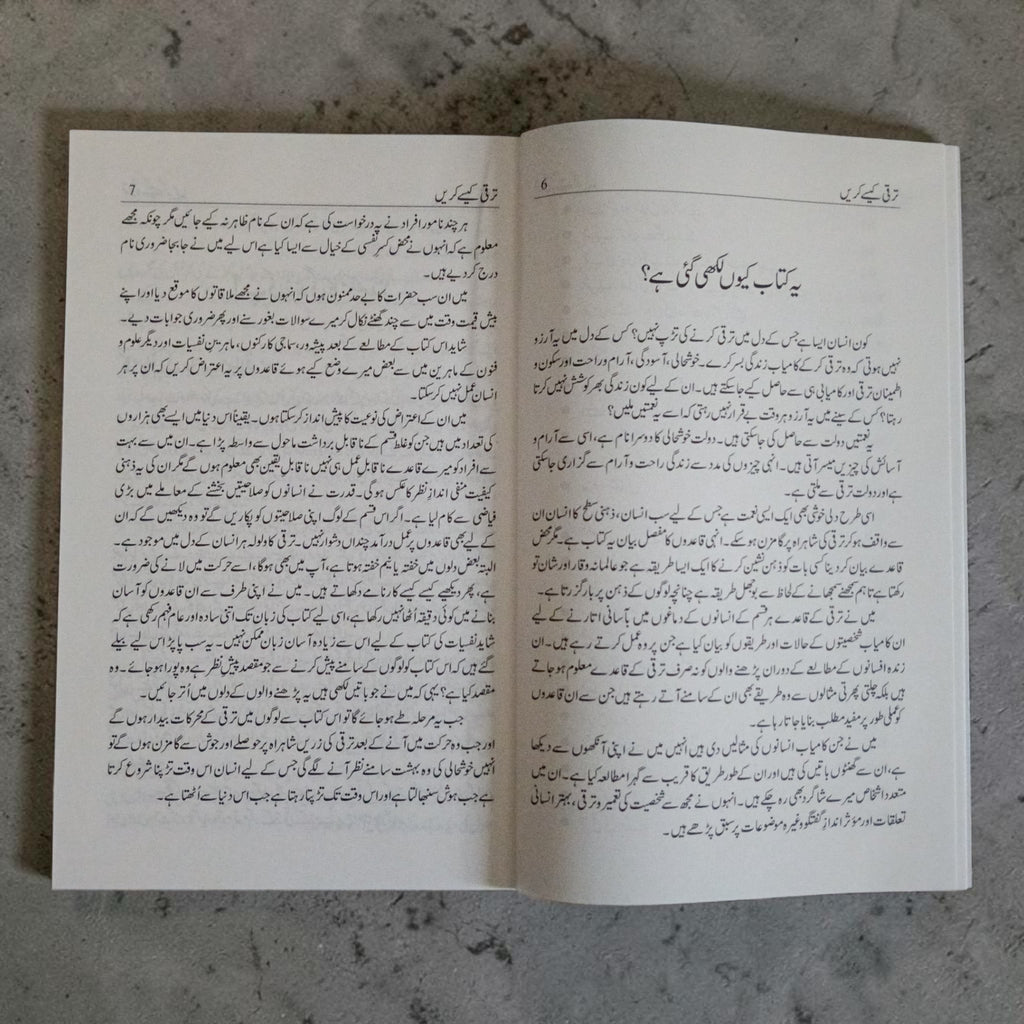 ترقی کیسے کریں
6
یہ کتاب کیوں لکھی گئی ہے؟
کون انسان ایسا ہے جس کے دل میں ترقی کرنے کی تڑپ نہیں؟ کس کے دل میں یہ آرزو
نہیں ہوتی کہ وہ ترقی کر کے کامیاب زندگی بسر کرے۔ خوشحالی، آسودگی، آرام و راحت اور سکون و
اطمینان ترقی اور کامیابی ہی سے حاصل کیے جا سکتے ہیں۔ ان کے لیے کون زندگی بھر کوشش نہیں کرتا
رہتا؟ کس کے سینے میں یہ آرزو ہر وقت بے قرار نہیں رہتی کہ اسے یہ نعمتیں ملیں؟
یہ نعمتیں دولت سے حاصل کی جا سکتی ہیں۔ دولت خوشحالی کا دوسرا نام ہے، اسی سے آرام و
آسائش کی چیزیں میسر آتی ہیں۔ انہی چیزوں کی مدد سے زندگی راحت و آرام سے گزاری جا سکتی
ہے اور دولت ترقی سے ملتی ہے۔
اسی طرح دلی خوشی بھی ایک ایسی نعمت ہے جس کے لیے سب انسان، ذہنی سطح کا انسان ان
سے واقف ہو کر ترقی کی شاہراہ پر گامزن ہو سکے۔ انہی قاعدوں کا مفصل بیان یہ کتاب ہے۔ مگر محض
قاعدے بیان کر دینا کسی بات کو ذہن نشین کرنے کا ایک ایسا طریقہ ہے جو عالمانہ وقار اور شان تو
رکھتا ہے تاہم سمجھنے سمجھانے کے لحاظ سے بوجھل طریقہ ہے چنانچہ لوگوں کے ذہن پر بار گزرتا ہے۔
میں نے ترقی کے قاعدے ہر قسم کے انسانوں کے دماغوں میں بآسانی اتارنے کے لیے
ان کامیاب شخصیتوں کے حالات اور طریقوں کو بیان کیا ہے جن پر وہ عمل کرتے رہے ہیں۔ ان
زندہ افسانوں کے مطالعے کے دوران پڑھنے والوں کو نہ صرف ترقی کے قاعدے معلوم ہو جاتے
ہیں بلکہ چلتی پھرتی مثالوں سے وہ طریقے بھی ان کے سامنے آتے رہتے ہیں جن سے ان قاعدوں
کو عملی طور پر مفید مطلب بنایا جاتا رہا ہے۔
میں نے جن کامیاب انسانوں کی مثالیں دی ہیں انہیں میں نے اپنی آنکھوں سے دیکھا
ہے، ان سے گھنٹوں باتیں کی ہیں اور ان کے طور طریق کا قریب سے گہرا مطالعہ کیا ہے۔ ان میں
متعدد اشخاص میرے شاگرد بھی رہ چکے ہیں۔ انہوں نے مجھ سے شخصیت کی تعمیر و ترقی، بہتر انسانی
تعلقات اور مؤثر انداز گفتگو وغیرہ موضوعات پر سبق پڑھے ہیں۔
ترقی کیسے کریں
7
ہر چند نامور افراد نے یہ درخواست کی ہے کہ ان کے نام ظاہر نہ کیے جائیں مگر چونکہ مجھے
معلوم ہے کہ انہوں نے محض کسرِ نفسی کے خیال سے ایسا کیا ہے اس لیے میں نے جا بجا ضروری نام
درج کر دیے ہیں۔
میں ان سب حضرات کا بے حد ممنون ہوں کہ انہوں نے مجھے ملاقاتوں کا موقع دیا اور اپنے
بیش قیمت وقت میں سے چند گھنٹے نکال کر میرے سوالات بغور سنے اور پھر ضروری جوابات دیے۔
شاید اس کتاب کے مطالعے کے بعد پیشہ ور، سماجی کارکنوں، ماہرینِ نفسیات اور دیگر علوم و
فنون کے ماہرین میں سے بعض میرے وضع کیے ہوئے قاعدوں پر یہ اعتراض کریں کہ ان پر ہر
انسان عمل نہیں کر سکتا۔
میں ان کے اعتراض کی نوعیت کا پیش انداز کر سکتا ہوں۔ یقیناً اس دنیا میں ایسے بھی ہزاروں
کی تعداد میں ہیں جن کو غلط قسم کے ناقابل برداشت ماحول سے واسطہ پڑا ہے۔ ان میں سے بہت
سے افراد کو میرے قاعدے ناقابل عمل ہی نہیں ناقابل یقین بھی معلوم ہوں گے مگر ان کی یہ ذہنی
کیفیت منفی اندازِ نظر کا عکس ہوگی۔ قدرت نے انسانوں کو صلاحیتیں بخشنے کے معاملے میں بڑی
فیاضی سے کام لیا ہے۔ اگر اس قسم کے لوگ اپنی صلاحیتوں کو پکاریں گے تو وہ دیکھیں گے کہ ان
کے لیے بھی قاعدوں پر عمل درآمد چنداں دشوار نہیں۔ ترقی کا ولولہ ہر انسان کے دل میں موجود ہے۔
البتہ بعض دلوں میں خفتہ یا نیم خفتہ ہوتا ہے، آپ میں بھی ہوگا، اسے حرکت میں لانے کی ضرورت
ہے، پھر دیکھیے کیسے کیسے کارنامے دکھاتے ہیں۔ میں نے اپنی طرف سے ان قاعدوں کو آسان
بنانے میں کوئی دقیقہ اُٹھا نہیں رکھا ہے، اسی لیے کتاب کی زبان تک اتنی سادہ اور عام فہم رکھی ہے کہ
شاید نفسیات کی کتاب کے لیے اس سے زیادہ آسان زبان ممکن نہیں۔ یہ سب پاپڑ اس لیے بیلے
گئے ہیں کہ اس کتاب کو لوگوں کے سامنے پیش کرنے سے جو مقصد پیشِ نظر ہے وہ پورا ہو جائے۔ وہ
مقصد کیا ہے؟ یہی کہ میں نے جو باتیں لکھی ہیں یہ پڑھنے والوں کے دلوں میں اُتر جائیں۔
جب یہ مرحلہ طے ہو جائے گا تو اس کتاب سے لوگوں میں ترقی کے محرکات بیدار ہوں گے
اور جب وہ حرکت میں آنے کے بعد ترقی کی زریں شاہراہ پر حوصلے اور جوش سے گامزن ہوں گے تو
انہیں خوشحالی کی وہ بہشت سامنے نظر آنے لگے گی جس کے لیے انسان اس وقت تڑپنا شروع کرتا
ہے جب ہوش سنبھالتا ہے اور اس وقت تک تڑپتا رہتا ہے جب اس دنیا سے اُٹھتا ہے۔